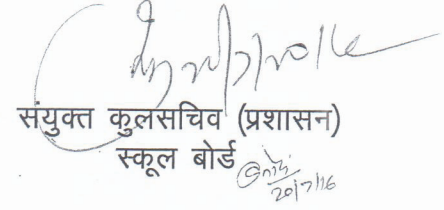 संयुक्त कुलसचिव (प्रशासन)
स्कूल बोर्ड
20/7/16